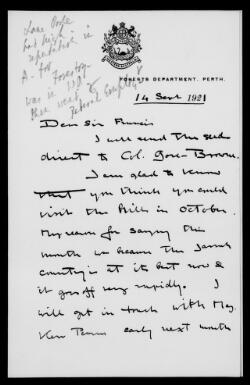 Lane Poole
had high
reputation in
A - for
Forestry -
was in
FORESTS DEPARTMENT, PERTH.
14 Sept 1921
Dear Sir Francis
I will send the seed
direct to Col. Gore-Browne.
I am glad to know
that you think you could
visit the Mills in October.
My reason for saying this
month was because the Jarrah
country is at its best now &
it goes off very rapidly. I
will get in touch with Maj.
early next month